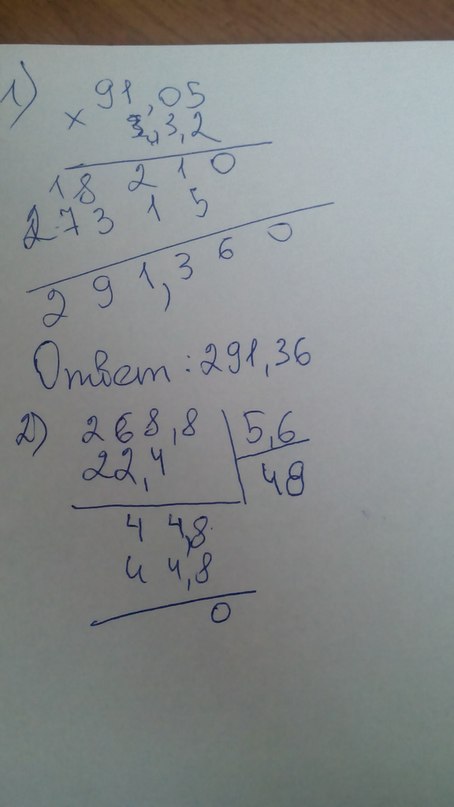 1) 91,05
× 3,2
18 2 1 0
273 1 5
2 9 1,3 6 0
Ответ: 291,36
2) 268,8 | 5,6
22,4 | 48
4 4,8
4 4,8
0